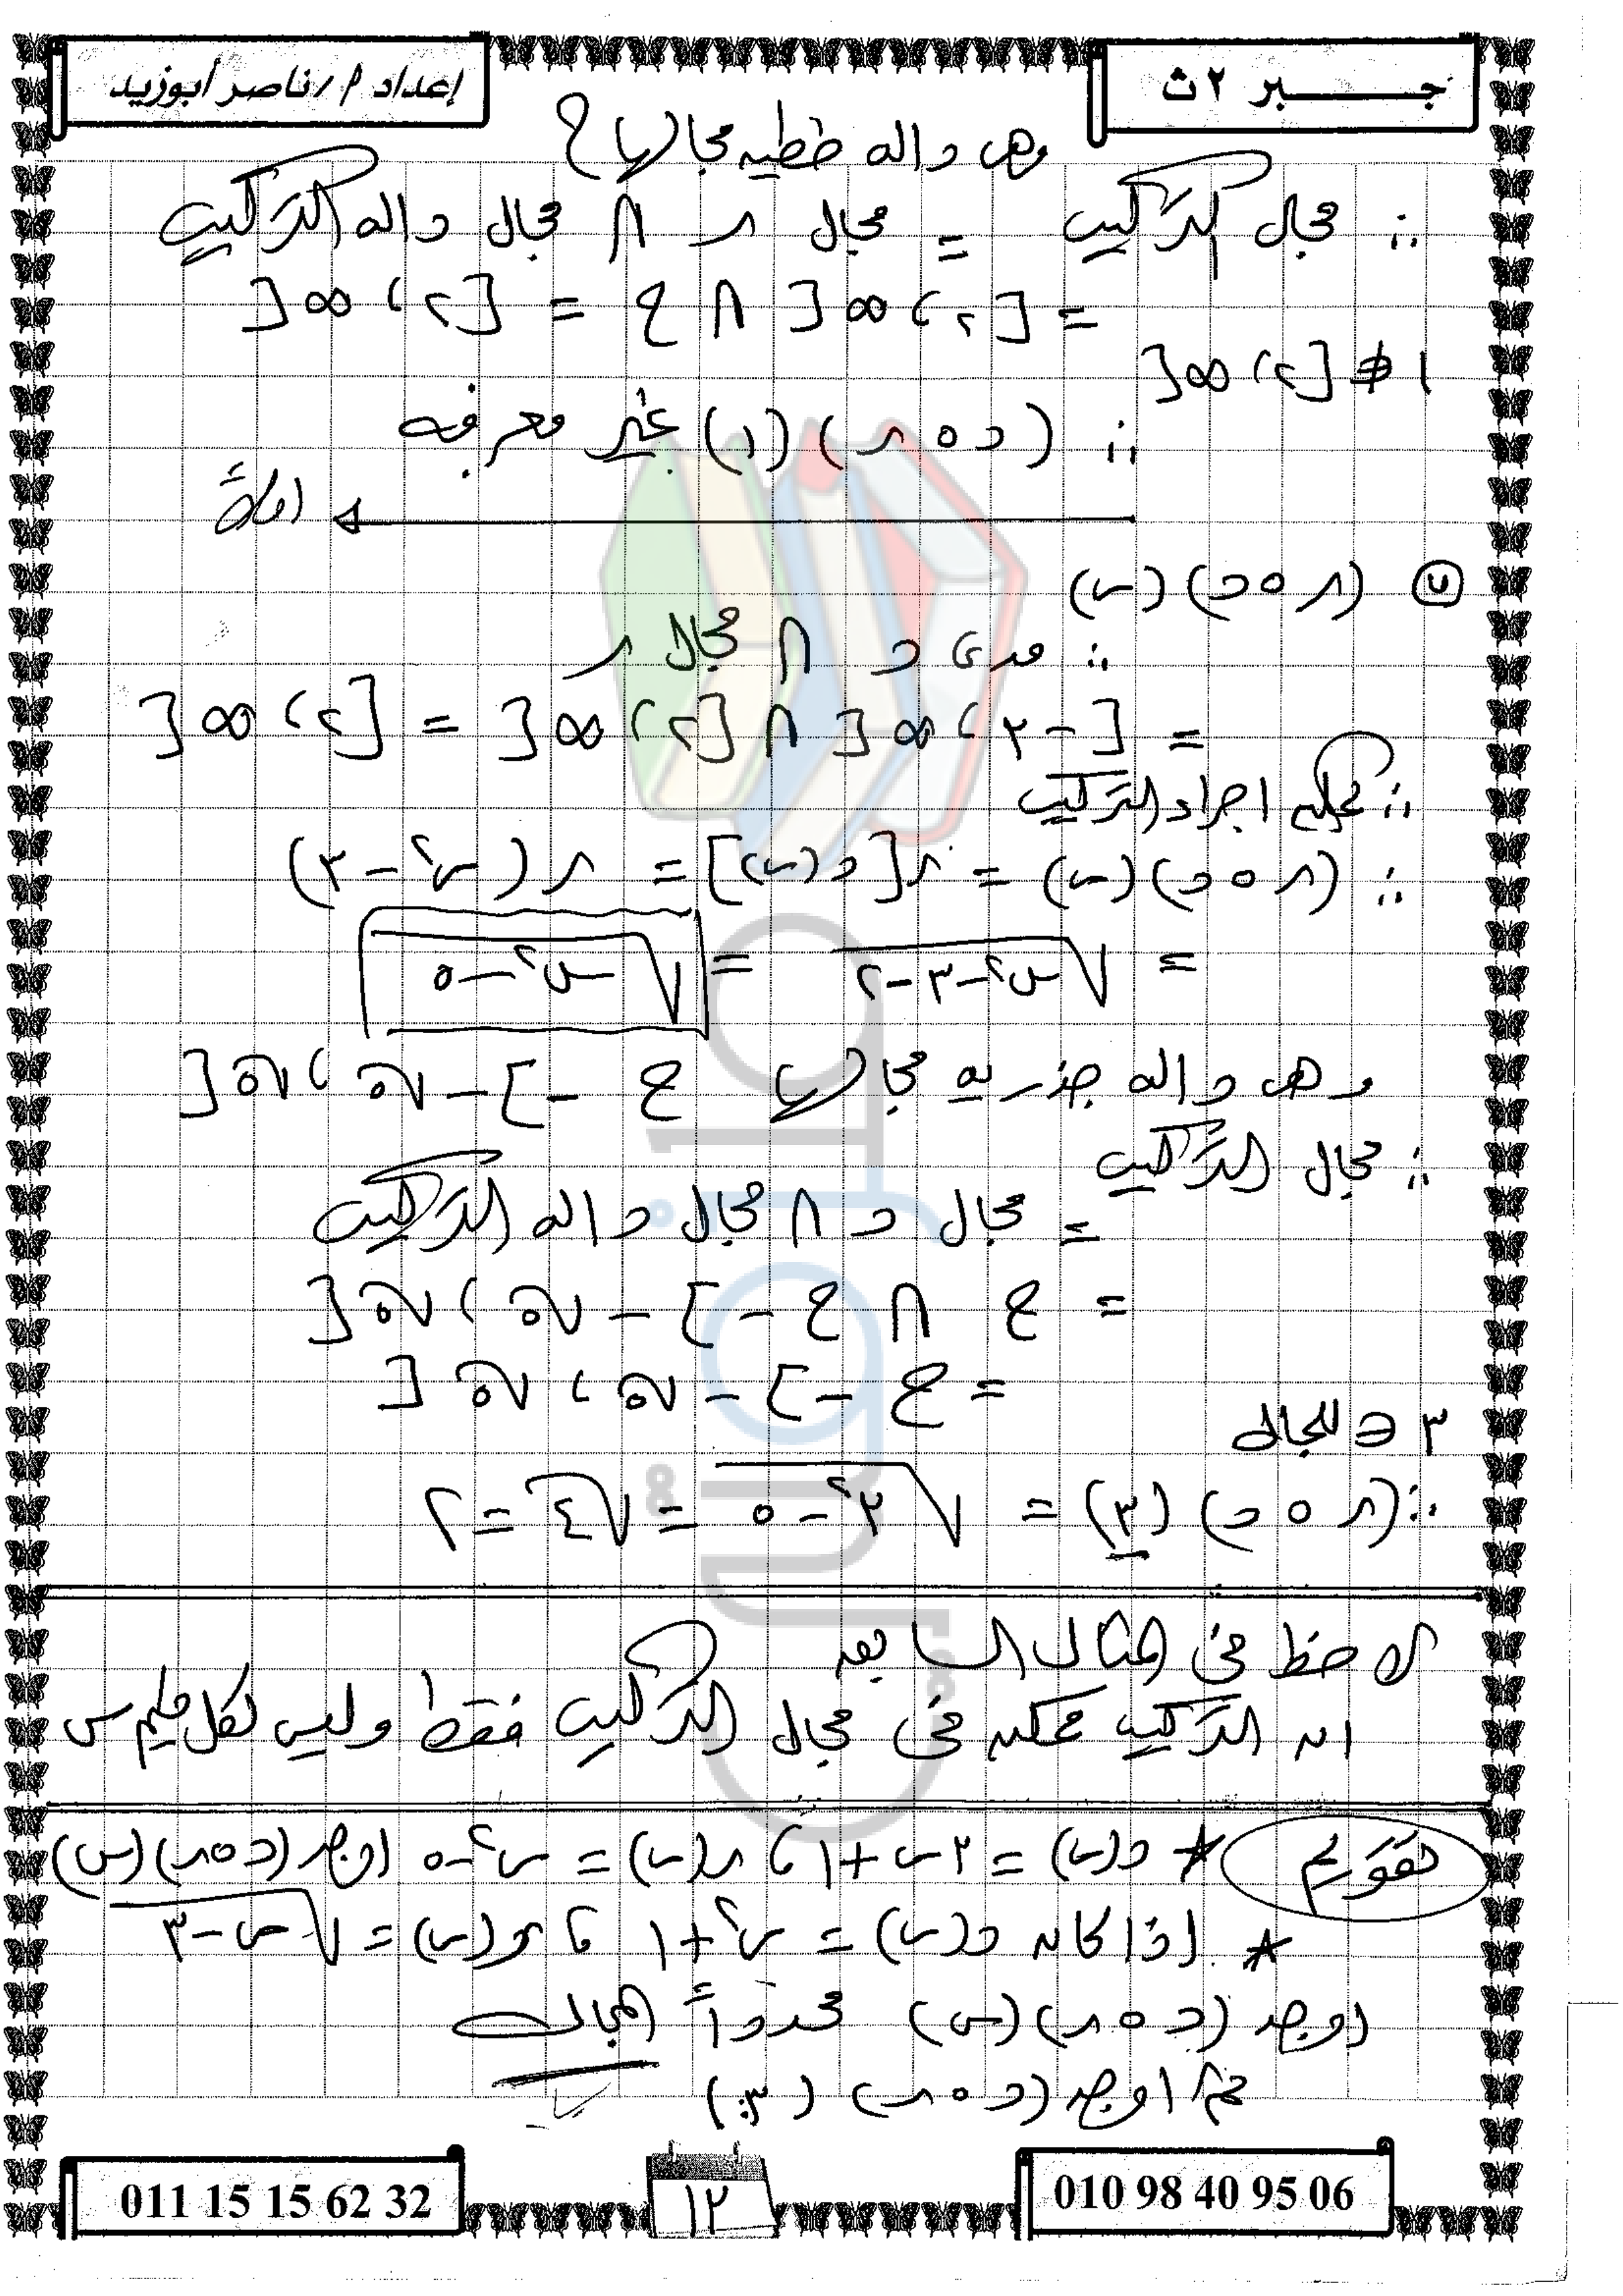 جبر ٢ث
إعداد م/ ناصر أبوزيد
وهى داله خطيه مجالها ح
∴ مجال التركيب = مجال ر ∩ مجال داله التركيب
= [٢، ∞[ ∩ ح = [٢، ∞[
١ ∉ [٢، ∞[
∴ (د ٥ ر)(١) غير معرفه
(ر ٥ د)(س)
∴ مدى د ∩ مجال ر
= [-٣، ∞[ ∩ [٢، ∞[ = [٢، ∞[
∴ يمكن اجراء التركيب
∴ (ر ٥ د)(س) = ر[د(س)] = ر(س² - ٣)
= √(س² - ٣ - ٢) = √(س² - ٥)
وهى داله جذريه مجالها ح - ]-√٥، √٥[
∴ مجال التركيب
= مجال د ∩ مجال داله التركيب
= ح ∩ ح - ]-√٥، √٥[
= ح - ]-√٥، √٥[
٣ ∈ للمجال
∴ (ر ٥ د)(٣) = √(٣² - ٥) = √٤ = ٢
لاحظ فى المثال السابق
ان التركيب ممكن فى مجال التركيب فقط وليس لكل قيم س
تقويم * د(س) = ٣س + ١ ، ر(س) = س² - ٥ اوجد (د ٥ ر)(س)
* اذا كان د(س) = س² + ١ ، ر(س) = √(س - ٣)
اوجد (د ٥ ر)(س) محدداً المجال
ثم اوجد (د ٥ ر)(٣)
011 15 15 62 32
١٢
010 98 40 95 06